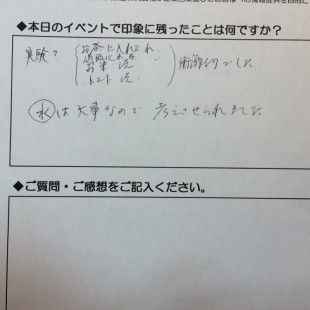 ◆本日のイベントで印象に残ったことは何ですか？
実験で
お茶に入れよれ
お米 洗
トマト 洗
衝撃的でした
水は大事なので 考えさせられました
◆ご質問・ご感想をご記入ください。